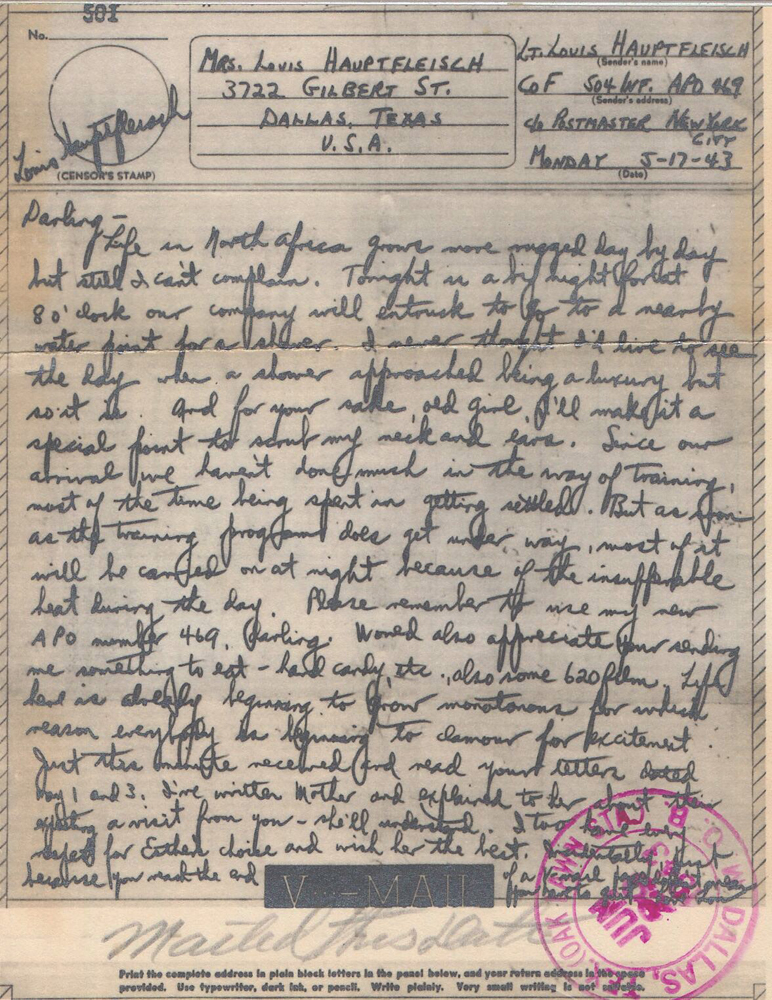 501
No.
(CENSOR'S STAMP)
Louis Hauptfleisch
MRS. LOUIS HAUPTFLEISCH
3722 GILBERT ST.
DALLAS, TEXAS
U.S.A.
LT. LOUIS HAUPTFLEISCH
(Sender's name)
CO F 504 INF. APO 469
(Sender's address)
c/o POSTMASTER NEW YORK
CITY
MONDAY 5-17-43
(Date)
Darling –
Life in North Africa grows more rugged day by day
but still I can't complain. Tonight is a big night for at
8 o'clock our company will entruck to go to a nearby
water point for a shower. I never thought I'd live to see
the day when a shower approached being a luxury but
so it is. And for your sake, old girl, I'll make it a
special point to scrub my neck and ears. Since our
arrival we haven't done much in the way of training,
most of the time being spent in getting settled. But as soon
as the training program does get under way, most of it
will be carried on at night because of the insufferable
heat during the day. Please remember to use my new
APO number 469, darling. Would also appreciate your sending
me something to eat – hard candy, etc., also some 620 film. Life
here is already beginning to grow monotonous for which
reason everybody is beginning to clamour for excitement.
Just this minute received and read your letters dated
May 1 and 3. I've written Mother and explained to her about their
expecting a visit from you – she'll understand. I too have every
respect for Esther's choice and wish her the best. Incidentally, just
because you reach the end
of a
V···—MAIL
Mailed this date
DALLAS,
JUN
Print the complete address in plain block letters in the panel below, and your return address in the space
provided. Use typewriter, dark ink, or pencil. Write plainly. Very small writing is not suitable.